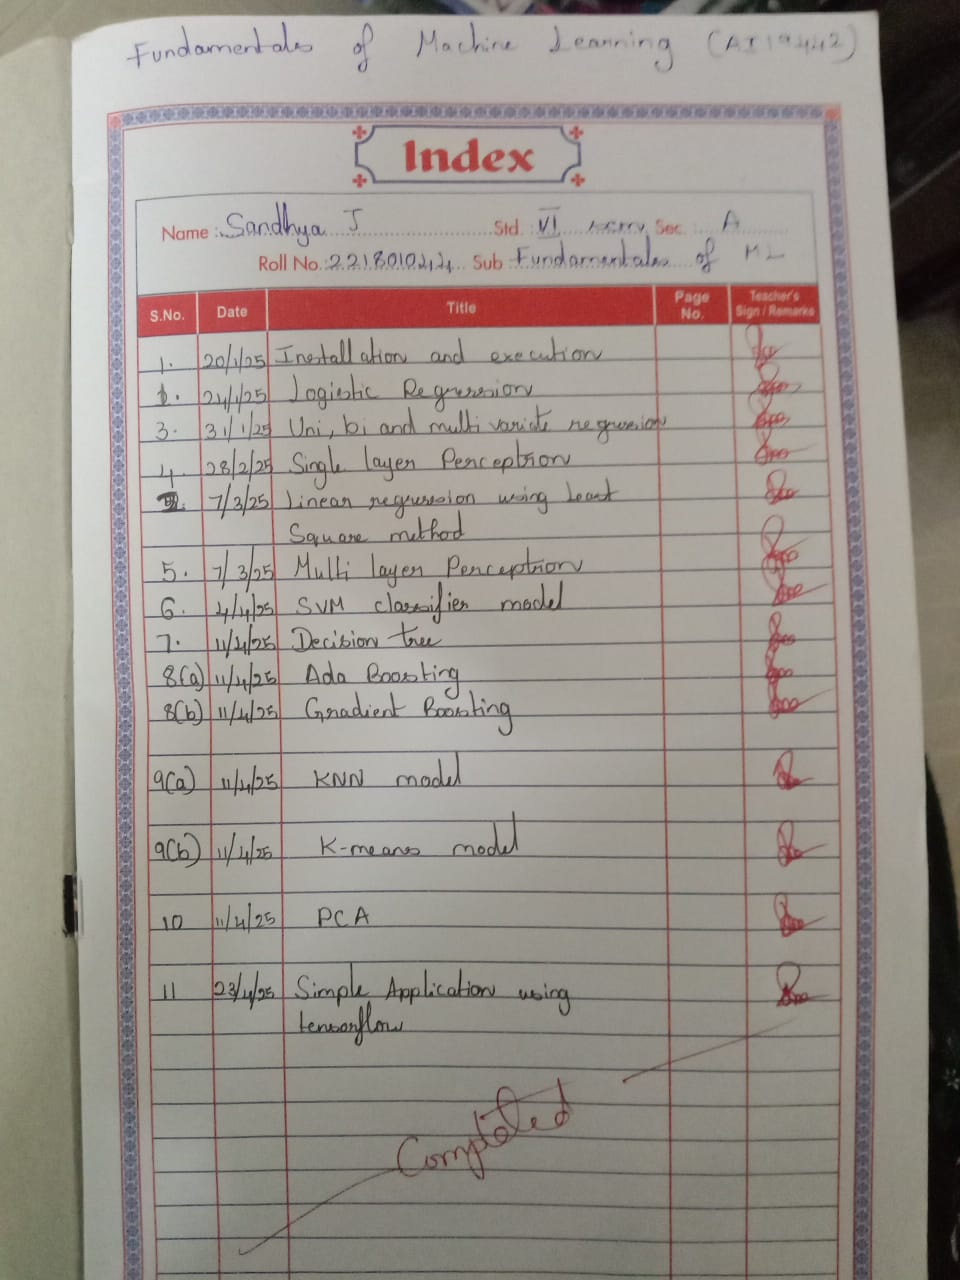 Fundamentals of Machine Learning (AI19442)
Index
Name : Sandhya J Std VI Sec A
Roll No. 221801044 Sub Fundamentals of ML
S.No. Date Title Page No. Teacher's Sign / Remarks
1. 20/1/25 Installation and execution
24/1/25 Logistic Regression
3. 31/1/25 Uni, bi and multi variate regression
4. 28/2/25 Single layer Perceptron
7/3/25 Linear regression using Least
Square method
5. 7/3/25 Multi layer Perceptron
6. 4/4/25 SVM classifier model
7. 11/4/25 Decision tree
8(a) 11/4/25 Ada Boosting
8(b) 11/4/25 Gradient Boosting
9(a) 11/4/25 KNN model
9(b) 11/4/25 K-means model
10 11/4/25 PCA
11 23/4/25 Simple Application using
tensorflow
Completed